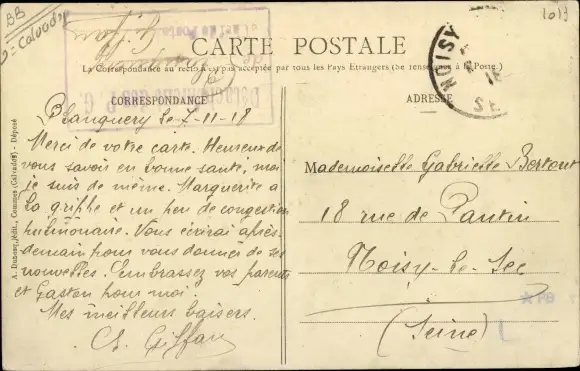 BB
Calvados
1013
CARTE POSTALE
La Correspondance au recto n'est pas acceptée par tous les Pays Etrangers (Se renseigner à la Poste.)
Détachement des P. G.
CORRESPONDANCE
ADRESSE
NOISY
SE
18
Planquery le 7-11-18
Merci de votre carte. Heureux de
vous savoir en bonne santé, moi
je suis de même. Marguerite a
la grippe et un peu de congestion
pulmonaire. Vous écrirai après-
demain pour vous donner de ses
nouvelles. Embrassez vos parents
et Gaston pour moi.
Mes meilleurs baisers.
Ch. Giffard
Mademoiselle Gabrielle Bertout
18 rue de Pantin
Noisy-le-Sec
(Seine)
A. Dumont, édit., Commes (Calvados) - Déposé
PB
L